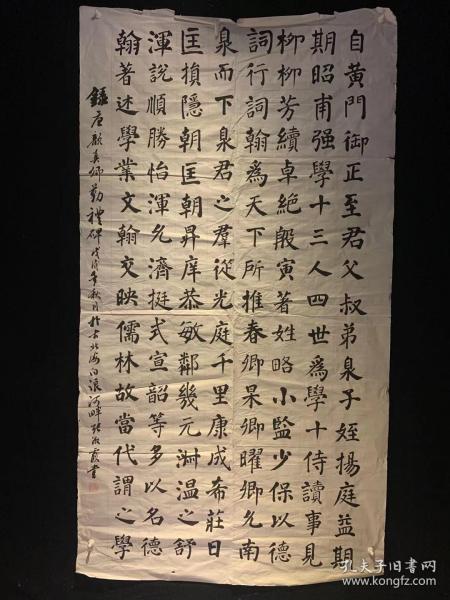 自黄門御正至君父叔弟泉子姪揚庭益期
期昭甫强學十三人四世爲學十侍讀事見
柳柳芳續卓絶殷寅著姓略小監少保以德
詞行詞翰爲天下所推春卿杲卿曜卿允南
泉而下泉君之羣從光庭千里康成希莊日
匡損隱朝匡朝昇庠恭敏鄰幾元淋温之舒
渾說順勝怡渾允濟挺式宣韶等多以名德
翰著述學業文翰交映儒林故當代謂之學
錄唐顏真卿勤禮碑戊戌年秋月於古北海白浪河畔
書
孔夫子旧书网
www.kongfz.com